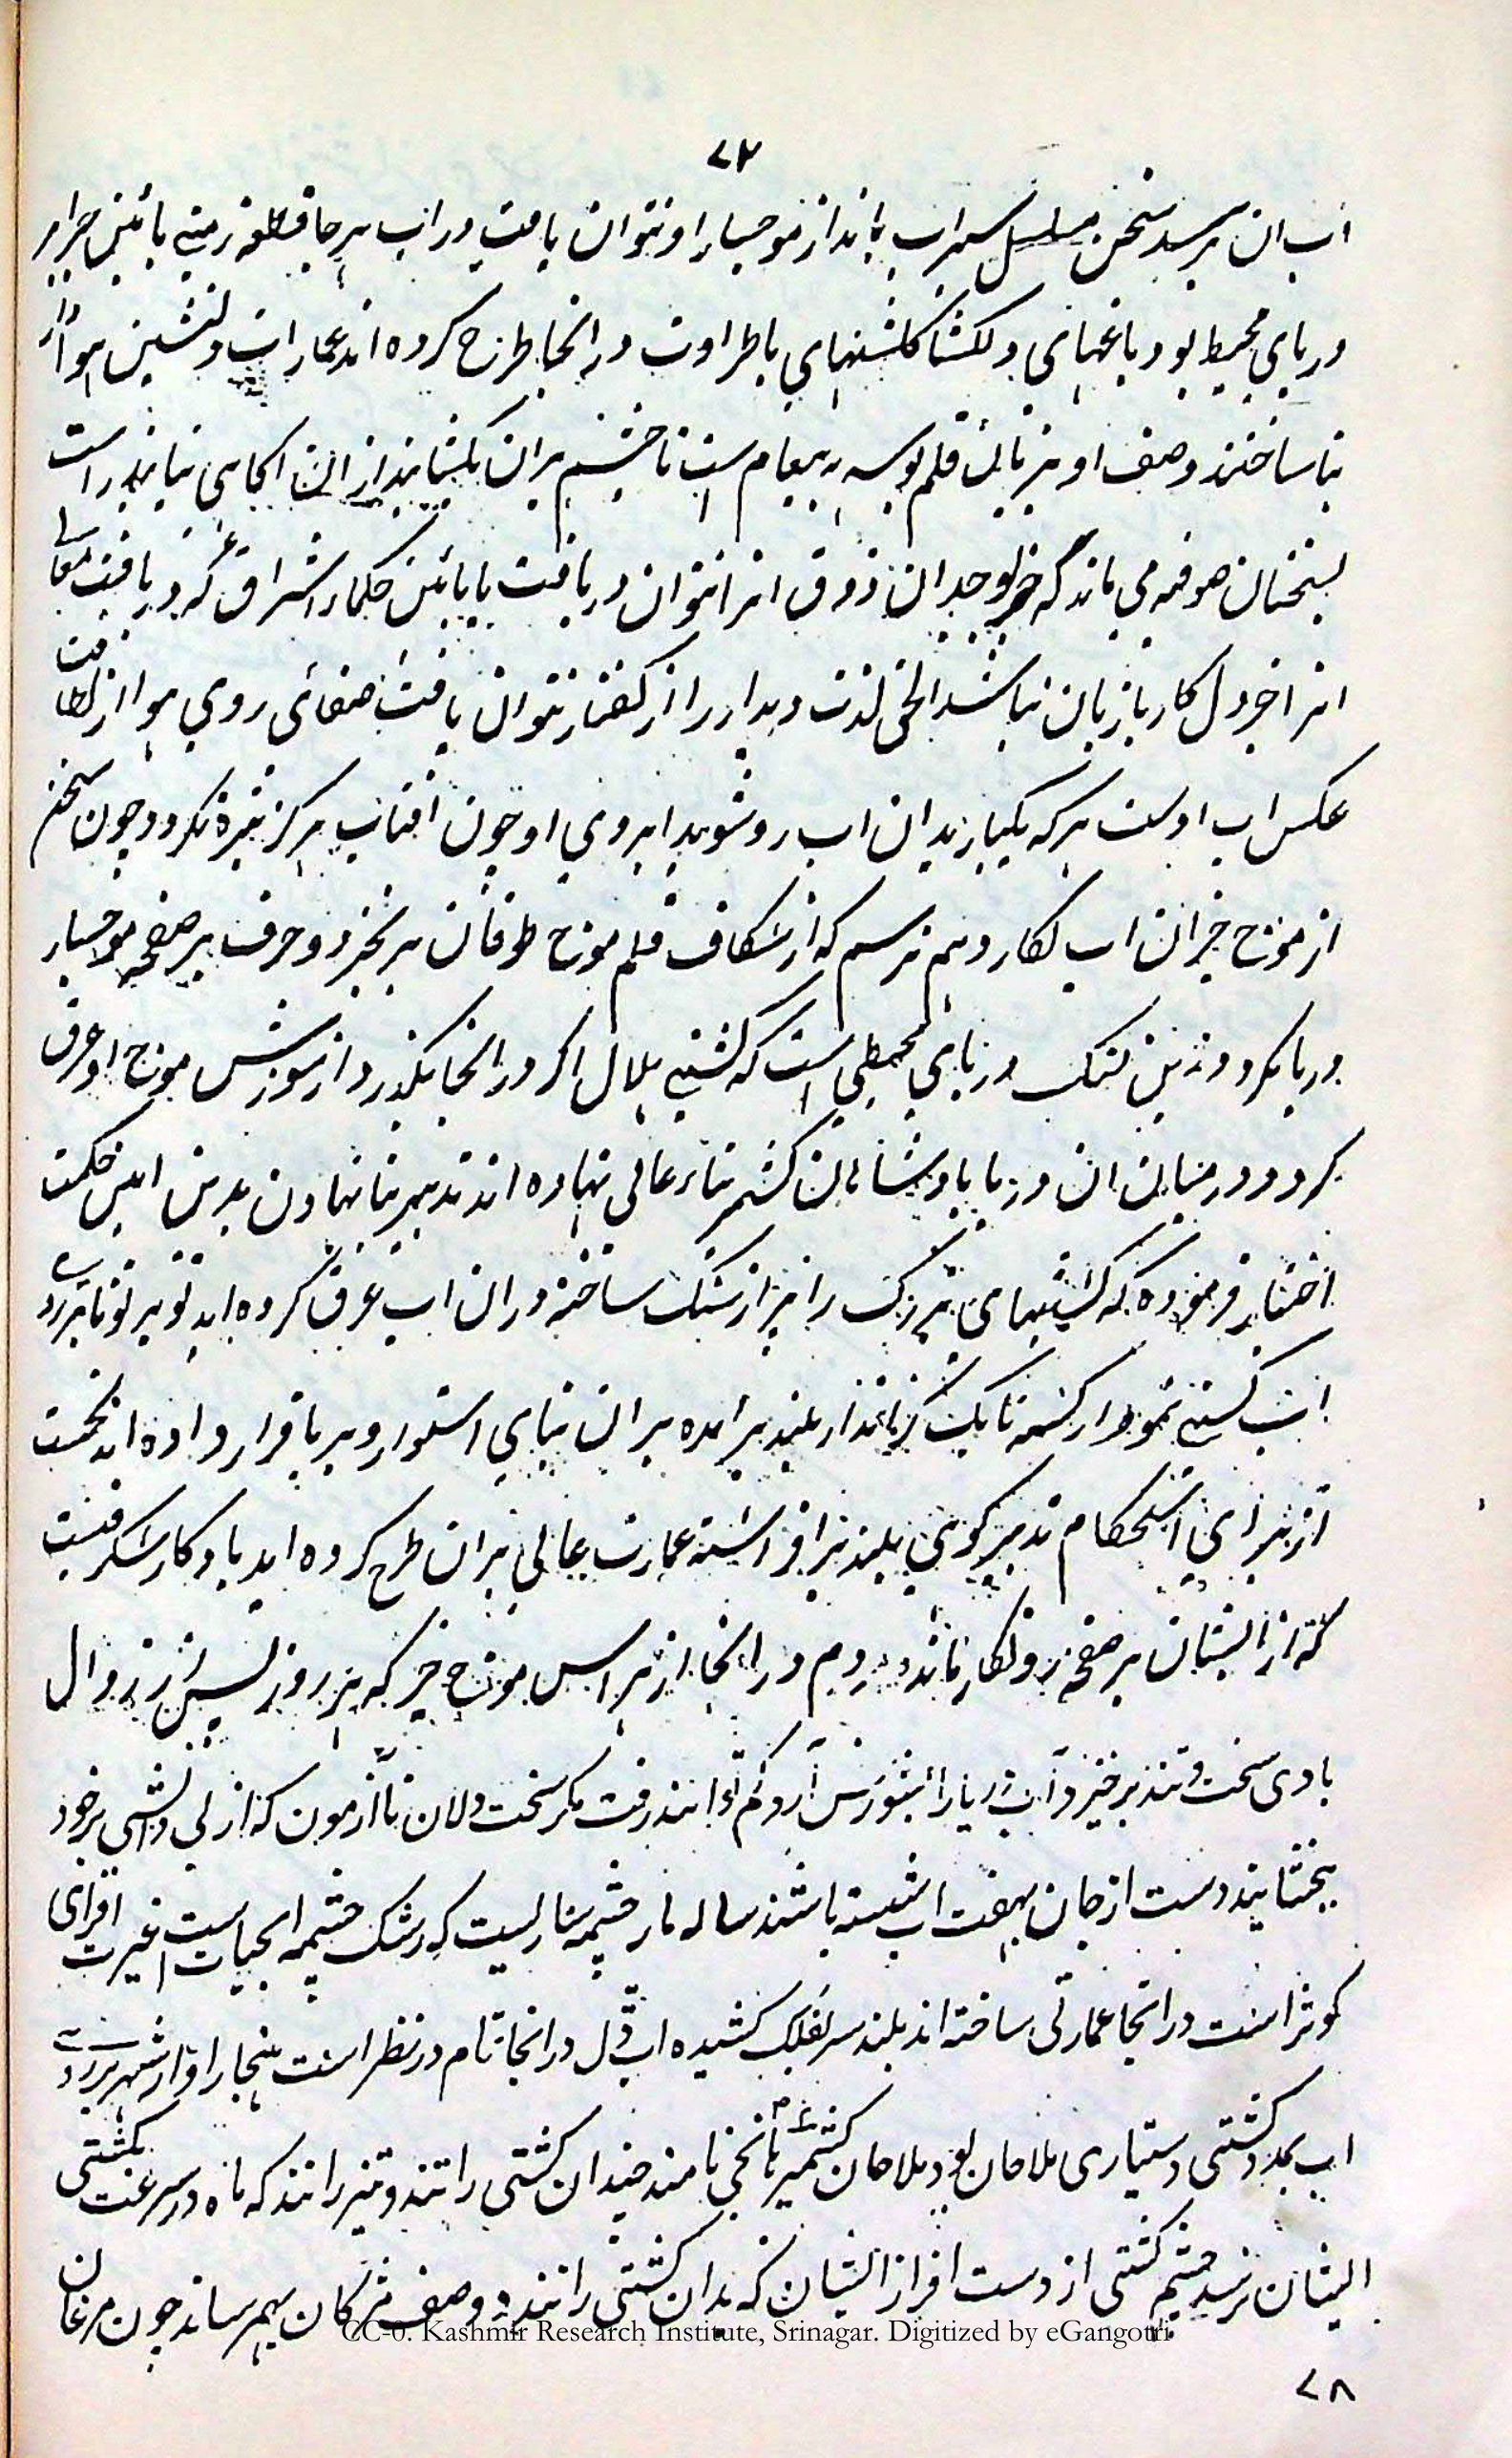 ۷۷
آب ان برسد سخن مسلسل سیراب بماند از موجسار او نتوان یافت در آب هر جا قطعه زمینی بآئین جزایر
دریای محیط بود باغهای دلکشا گلشنهای باطراوت در انجا طرح کرده اند عمارات دلنشین هوادار
بنا ساختند وصف او بزبان قلم بوسه به پیغام است تا چشم بران نکشایند از ان اکاهی نیابند راست
بسخنان صوفیه می ماند که جز بوجدان ذوق انرا نتوان دریافت یا بائین حکماء اشراق که دریافت معانی
انرا جز دل کار با زبان نباشد الحق لذت دیدار را از گفتار نتوان یافت صفای روی هوا از لطافت
عکس اب اوست هر که یکبار بدان اب رو شوید ابروی او چون افتاب هرگز تیره نکردد چون سخنم
از موج خیز ان اب نکار دهم ترسم که از شکاف قلم موج طوفان برخیزد و حرف بر صفحه موجسار
دریا کردد زین لنک دریای محیطی است که کشتی هلال اکر در انجا بگذرد از شورش موج او غرق
کردد در میان ان دریا بادشاهان کشمیر بناء عالی نهاده اند تدبیر بنا نهادن بدین ایین حکمت
اختیار فرموده که کشتیهای بزرگ را پر از سنگ ساخته دران اب غرق کرده اند تو بر تو تا بر روی
اب کشتی نمودار کشته تا یک گز بانداز بلند برامده بران بنای استوار و بر پا قرار داده اند نخست
از برای استحکام تدبیر کوهی بلند برافراشته عمارت عالی بران طرح کرده اند یادکار شکرفیست
که از ایشان بر صفحه روزکار مانده مردم در انجا از هراس موج خیز که هر روز پسین از زوال
بادی سخت و تند برخیزد آب دریا را بشورش آرد کم توانند رفت مکر سخت دلان نا آزمون که از بی دانشی بر خود
ببخشایند دست از جان بهفت اب شسته باشند ساله مار چشمه ساریست که رشک چشمه ابحیات است غیرت افزای
کوثر است در انجا عمارتی ساخته اند بلند سر بفلک کشیده اب ڈل در انجا تمام در نظر است هنجار او از شهر بر روی
اب بمدد کشتی دستیاری ملاحان بود ملاحان کشمیر مانجی نامند چندان کشتی را تند و تیز رانند که ماه در سرعت بکشتی
ایشان نرسد چشم کشتی از دست افراز ایشان که بدان کشتی رانند وصف مژکان بهم رساند چون مرغان
CC-0. Kashmir Research Institute, Srinagar. Digitized by eGangotri
۷۸